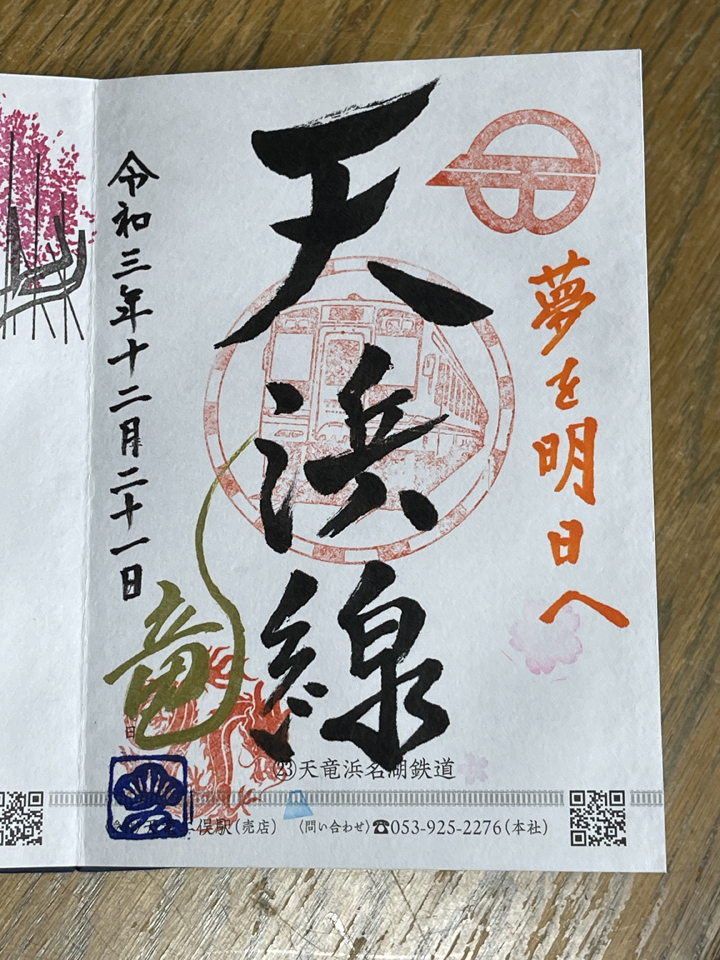 夢を明日へ
天浜線
令和三年十二月二十一日
竜
㉓天竜浜名湖鉄道
俣駅(売店) 〈問い合わせ〉☎053-925-2276(本社)